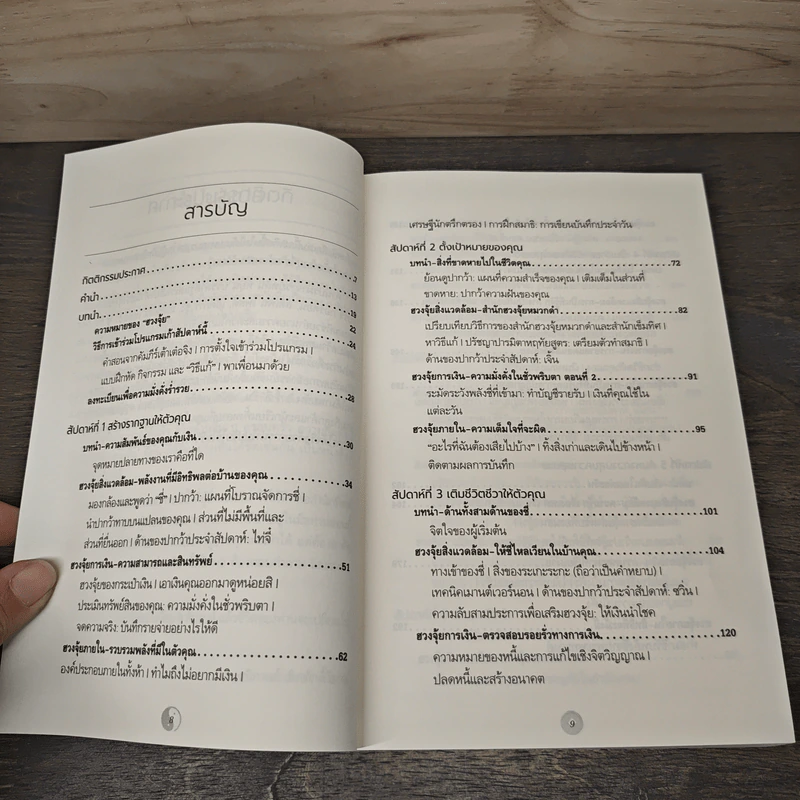 สารบัญ
กิตติกรรมประกาศ 7
คำนำ 13
บทนำ 19
ความหมายของ "ฮวงจุ้ย" 22
วิธีการเข้าร่วมโปรแกรมเก้าสัปดาห์นี้ 24
คำสอนจากคัมภีร์เต้าเต๋อจิง | การตั้งใจเข้าร่วมโปรแกรม |
แบบฝึกหัด กิจกรรม และ "วิธีแก้" | พาเพื่อนมาด้วย
ลงทะเบียนเพื่อความมั่งคั่งร่ำรวย 28
สัปดาห์ที่ 1 สร้างรากฐานให้ตัวคุณ
บทนำ-ความสัมพันธ์ของคุณกับเงิน 30
จุดหมายปลายทางของเราคือที่ใด
ฮวงจุ้ยสิ่งแวดล้อม-พลังงานที่มีอิทธิพลต่อบ้านของคุณ 34
มองกล้องและพูดว่า "ชี่" | ปากว้า: แผนที่โบราณจัดการชี่ |
นำปากว้าทาบบนแปลนของคุณ | ส่วนที่ไม่มีพื้นที่และ
ส่วนที่ยื่นออก | ด้านของปากว้าประจำสัปดาห์: ไท่จี๋
ฮวงจุ้ยการเงิน-ความสามารถและสินทรัพย์ 51
ฮวงจุ้ยของกระเป๋าเงิน | เอาเงินคุณออกมาดูหน่อยสิ |
ประเมินทรัพย์สินของคุณ: ความมั่งคั่งในชั่วพริบตา |
จดความจริง: บันทึกรายจ่ายอย่างไรให้ดี
ฮวงจุ้ยภายใน-รวบรวมพลังที่มีในตัวคุณ 62
องค์ประกอบภายในทั้งห้า | ทำไมถึงไม่อยากมีเงิน |
8
เศรษฐีนักตรึกตรอง | การฝึกสมาธิ: การเขียนบันทึกประจำวัน
สัปดาห์ที่ 2 ตั้งเป้าหมายของคุณ
บทนำ-สิ่งที่ขาดหายไปในชีวิตคุณ 72
ย้อนดูปากว้า: แผนที่ความสำเร็จของคุณ | เติมเต็มในส่วนที่
ขาดหาย: ปากว้าความฝันของคุณ
ฮวงจุ้ยสิ่งแวดล้อม-สำนักฮวงจุ้ยหมวกดำ 82
เปรียบเทียบวิธีการของสำนักฮวงจุ้ยหมวกดำและสำนักเข็มทิศ |
หาวิธีแก้ | ปรัชญาปารมิตาหฤทัยสูตร: เตรียมตัวทำสมาธิ |
ด้านของปากว้าประจำสัปดาห์: เจิ้น
ฮวงจุ้ยการเงิน-ความมั่งคั่งในชั่วพริบตา ตอนที่ 2 91
ระมัดระวังพลังชี่ที่เข้ามา: ทำบัญชีรายรับ | เงินที่คุณใช้ใน
แต่ละวัน
ฮวงจุ้ยภายใน-ความเต็มใจที่จะผิด 95
"อะไรที่ฉันต้องเสียไปบ้าง" | ทิ้งสิ่งเก่าและเดินไปข้างหน้า |
ติดตามผลการบันทึก
สัปดาห์ที่ 3 เติมชีวิตชีวาให้ตัวคุณ
บทนำ-ด้านทั้งสามด้านของชี่ 101
จิตใจของผู้เริ่มต้น
ฮวงจุ้ยสิ่งแวดล้อม-ให้ชี่ไหลเวียนในบ้านคุณ 104
ทางเข้าของชี่ | สิ่งของระเกะระกะ (ถือว่าเป็นคำหยาบ) |
เทคนิคเมานต์เวอร์นอน | ด้านของปากว้าประจำสัปดาห์: ซวิ่น |
ความลับสามประการเพื่อเสริมฮวงจุ้ย: ให้เงินนำโชค
ฮวงจุ้ยการเงิน-ตรวจสอบรอยรั่วทางการเงิน 120
ความหมายของหนี้และการแก้ไขเชิงจิตวิญญาณ |
ปลดหนี้และสร้างอนาคต
9